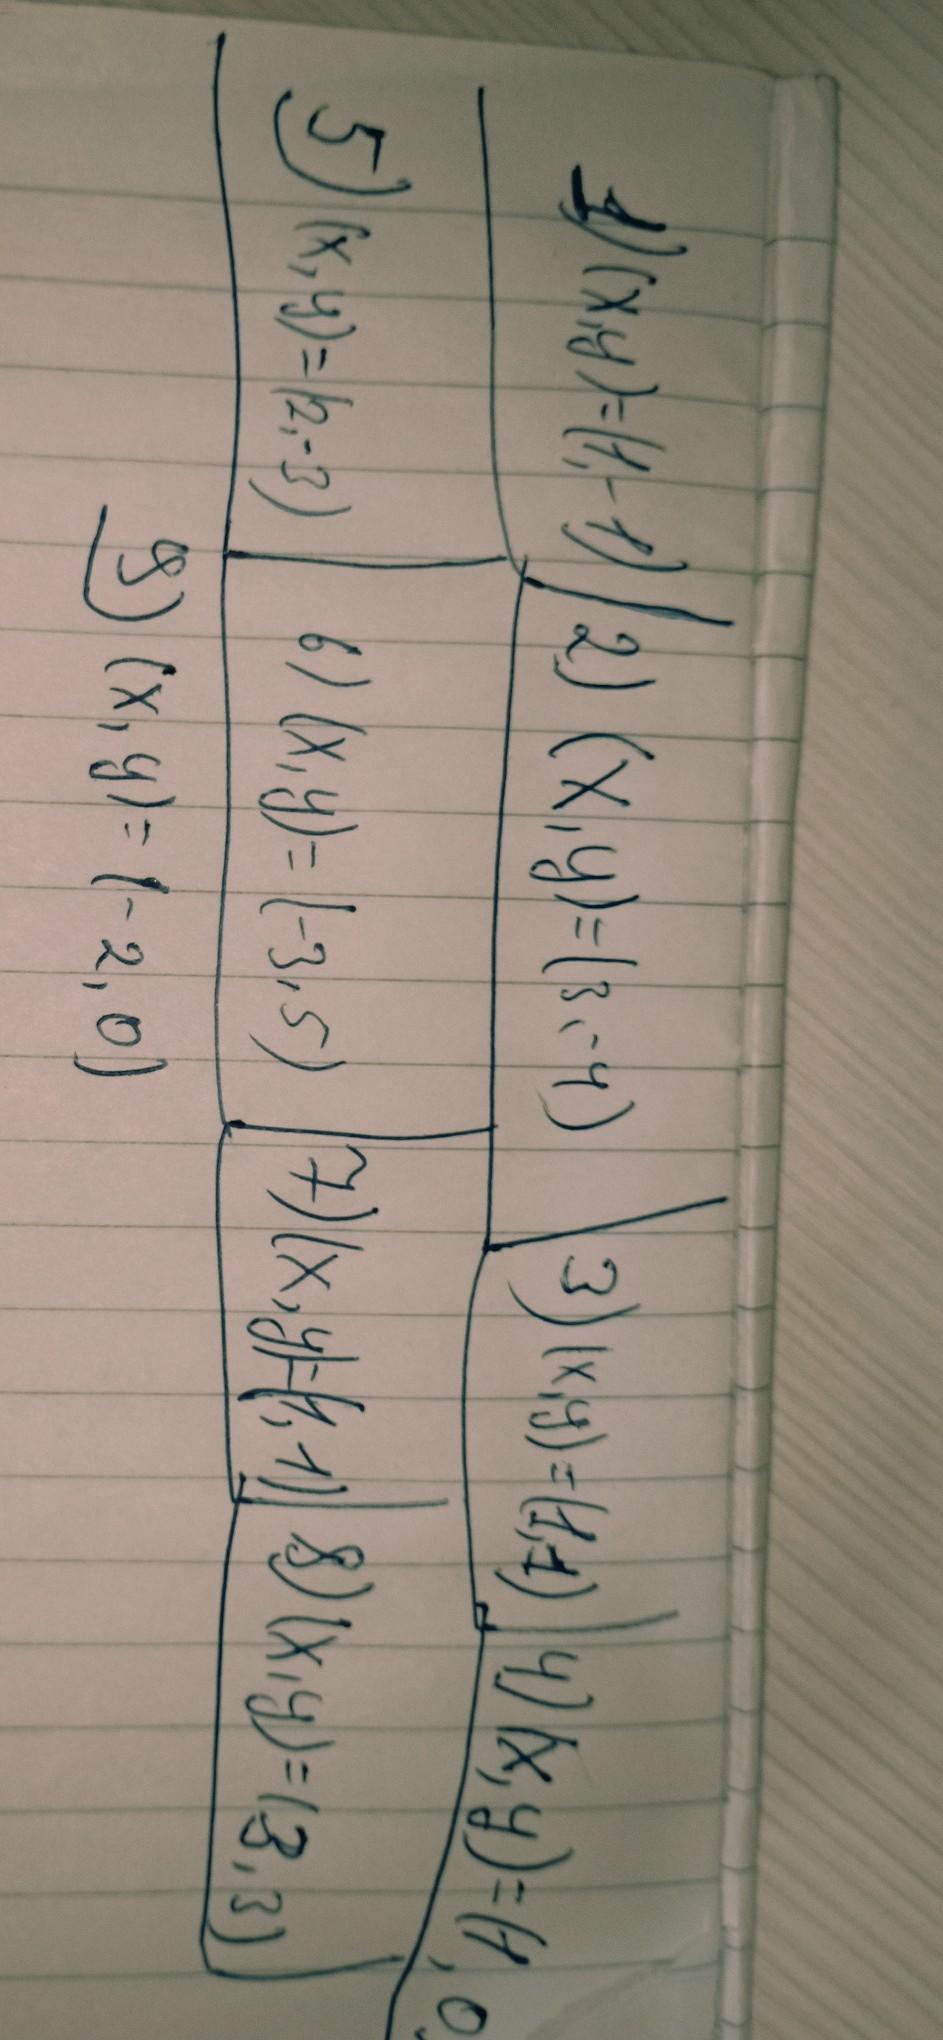 1) (x,y)=(1,-1) 2) (x,y)=(3,-4) 3) (x,y)=(1,1) 4) (x,y)=(1,0
5) (x,y)=(2,-3) 6) (x,y)=(-3,5) 7) (x,y)=(1,1) 8) (x,y)=(3,3)
9) (x,y)=(-2,0)